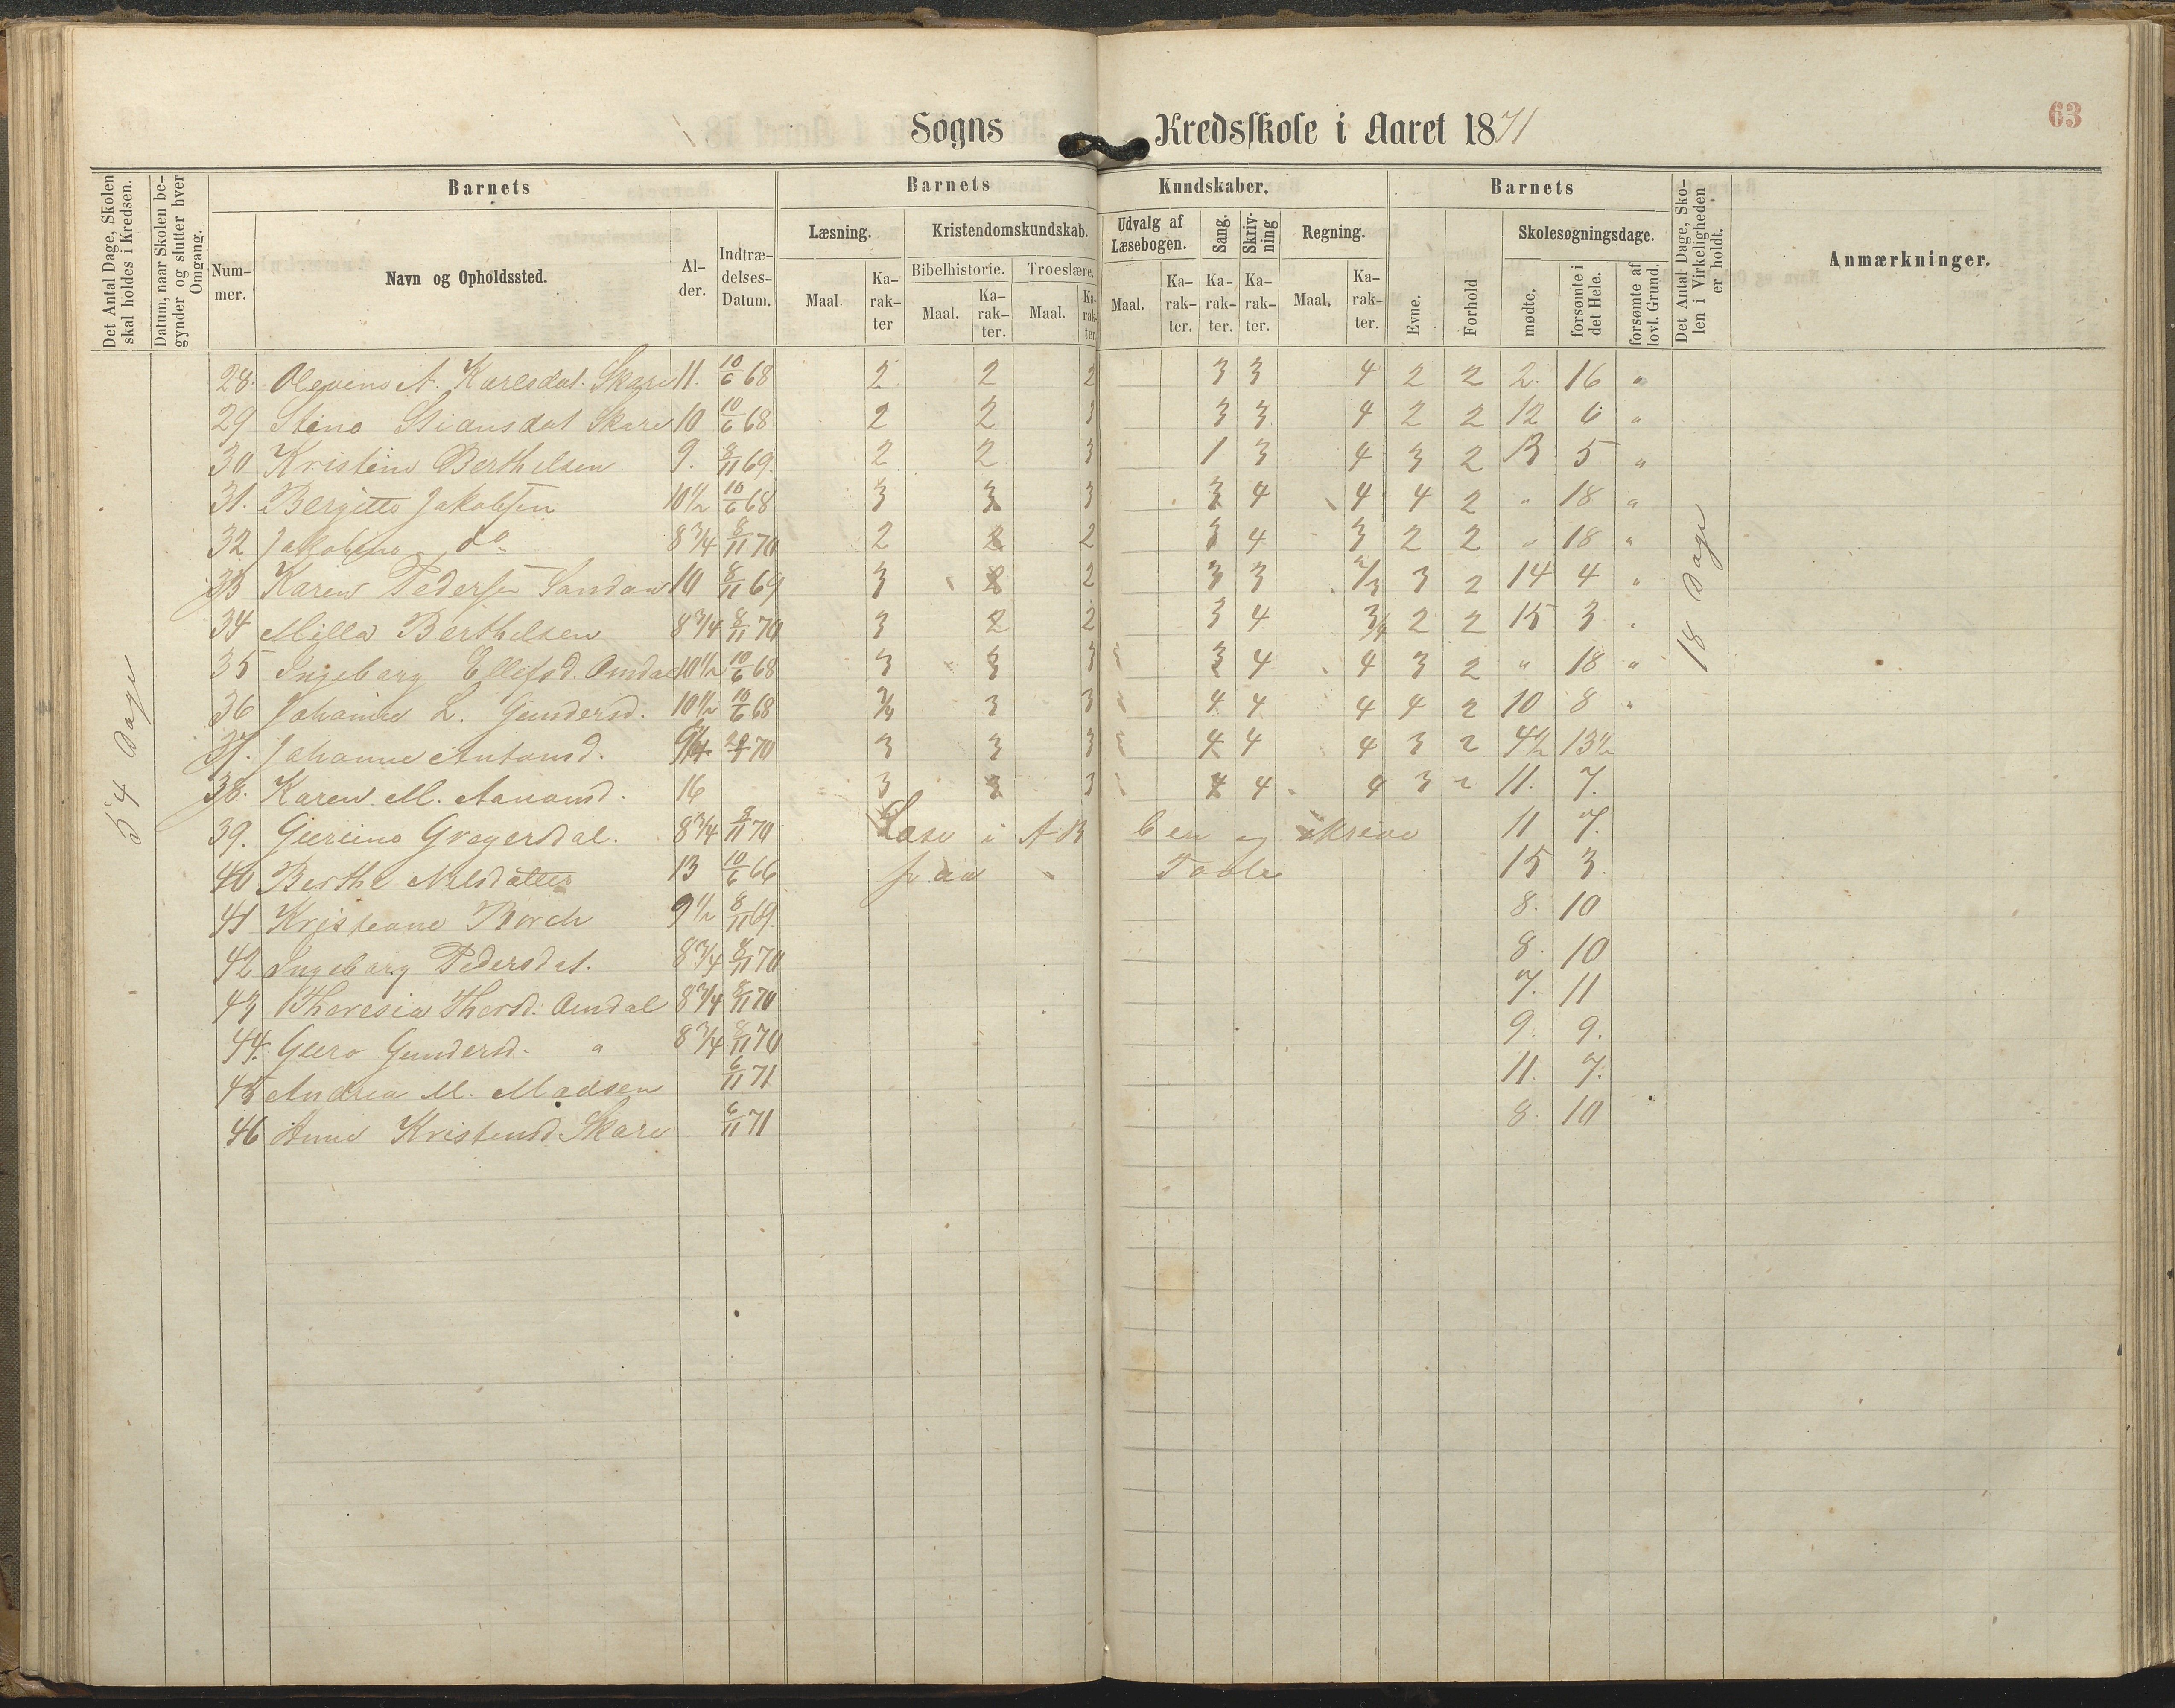 63
Sogns Kredsskole i Aaret 1871
Det Antal Dage, Skolen skal holdes i Kredsen.
Datum, naar Skolen begynder og slutter hver Omgang.
Barnets
Barnets Kundskaber.
Barnets
Det Antal Dage, Skolen i Virkeligheden er holdt.
Anmærkninger.
Nummer.
Navn og Opholdssted.
Alder.
Indtrædelses-Datum.
Læsning.
Kristendomskundskab.
Udvalg af Læsebogen.
Sang.
Skrivning
Regning.
Evne.
Forhold
Skolesøgningsdage.
Bibelhistorie.
Troeslære.
mødte.
forsømte i det Hele.
forsømte af lovl. Grund.
Maal. Karakter Maal. Karakter. Maal. Karakter. Maal. Karakter. Karakter. Karakter. Maal. Karakter.
54 Dage
18 Dage
28. A. Karlsdat. Skare 11. 10/6 68 2 2 2 3 3 4 2 2 2. 16 "
29 Stine Stiansdat Skare 10 10/6 68 2 2 3 3 3 4 2 2 12 6 "
30 Kristine Berthelsen 9. 8/11 69. 2 2 3 1 3 4 3 2 13 5 "
31. Bergitte Jakobsen 10 1/2 10/6 68 3 3 3 3 4 4 4 2 " 18 "
32 Jakobine do 8 3/4 8/11 70 2 2 2 3 4 3 2 2 " 18 "
33 Karen Pedersen 10 8/11 69 3 2 2 3 3 2/3 3 2 14 4 "
34 Milla Berthelsen 8 3/4 8/11 70 3 2 2 3 4 3/4 2 2 15 3 "
35 Ingeborg Ellefsd. Omdal 10 1/2 10/6 68 3 3 3 3 4 4 3 2 " 18 "
36 Johanne L. Gundersd. 10 1/2 10/6 68 3/4 3 3 4 4 4 4 2 10 8 "
37. Johanne Antonsd. 70 3 3 3 4 4 4 3 2 4 1/2 13 1/2
38. Karen M. Aanonsd. 16 3 3 3 4 4 4 3 2 11. 7.
39. Gregersdat. 8 3/4 8/11 70 Læse i A B C en og skrive 11 7.
40 Berthe Nilsdatter 13 10/6 66 paa Tavle 15 3.
41 Kristeane Borch 9 1/2 8/11 69. 8. 10
42 Ingeborg Pedersdat. 8 3/4 8/11 70 8. 10
43 Theresia Thorsd. Omdal 8 3/4 8/11 70 7. 11
44. Guro Gundersd. " 8 3/4 8/11 70 9. 9.
45 Andrea M. Madsen 6/11 71 11. 7.
46 Anne Kristensd. Skare 6/11 71 8. 10